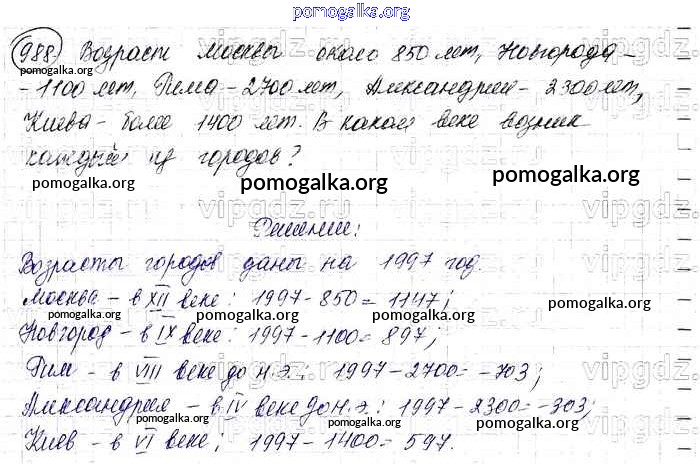 pomogalka.org
988. Возраст Москвы около 850 лет, Новгорода –
pomogalka.org
– 1100 лет, Рима – 2700 лет, Александрии – 2300 лет,
pomogalka.org
Киева – более 1400 лет. В каком веке возник
каждый из городов?
pomogalka.org pomogalka.org pomogalka.org
vipgdz vipgdz.
Решение:
Возрасты городов даны на 1997 год.
pomogalka.org
Москва – в XII веке: 1997 – 850 = 1147;
pomogalka.org pomogalka.org
Новгород – в IX веке: 1997 – 1100 = 897;
Рим – в VIII веке до н.э.: 1997 – 2700 = –703;
Александрия – в IV веке до н.э.: 1997 – 2300 = –303;
pomogalka.org pomogalka.org
Киев – в VI веке; 1997 – 1400 = 597.
pomogalka.org pomogalka.org